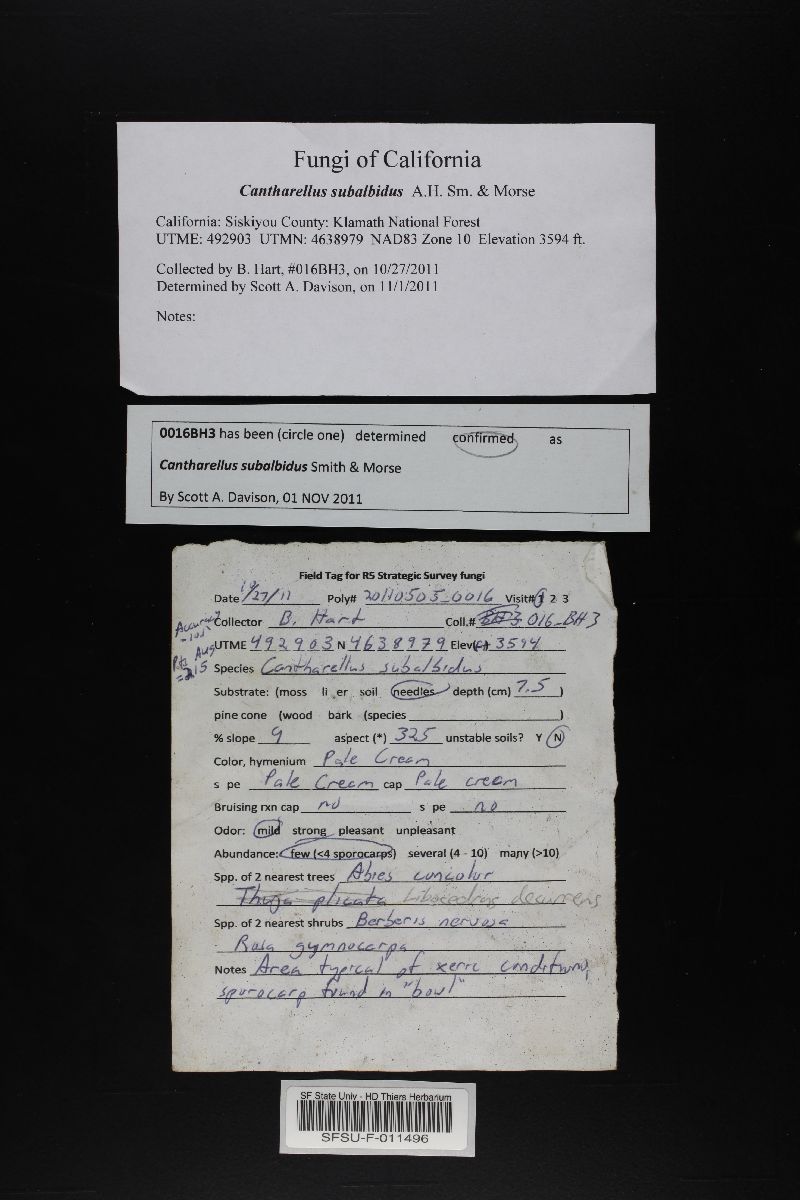 Fungi of California
Cantharellus subalbidus A.H. Sm. & Morse
California: Siskiyou County: Klamath National Forest
UTME: 492903 UTMN: 4638979 NAD83 Zone 10 Elevation 3594 ft.
Collected by B. Hart, #016BH3, on 10/27/2011
Determined by Scott A. Davison, on 11/1/2011
Notes:
0016BH3 has been (circle one) determined confirmed as
Cantharellus subalbidus Smith & Morse
By Scott A. Davison, 01 NOV 2011
Field Tag for R5 Strategic Survey fungi
Date 10/27/11 Poly# 20110505_0016 Visit# 1 2 3
Collector B. Hart Coll.# 016_BH3
Accuracy
UTME 492903 N 4638979 Elev(ft) 3594
Species Cantharellus subalbidus
Substrate: (moss li er soil needles depth (cm) 7.5 )
pine cone (wood bark (species )
% slope 9 aspect (°) 325 unstable soils? Y N
Color, hymenium Pale Cream
s pe Pale Cream cap Pale cream
Bruising rxn cap no s pe no
Odor: mild strong pleasant unpleasant
Abundance: few (<4 sporocarps) several (4 - 10) many (>10)
Spp. of 2 nearest trees Abies concolor
Thuja plicata Libocedrus decurrens
Spp. of 2 nearest shrubs Berberis nervosa
Rosa gymnocarpa
Notes Area typical of xeric conditions,
sporocarp found in "bowl"
SF State Univ - HD Thiers Herbarium
SFSU-F-011496